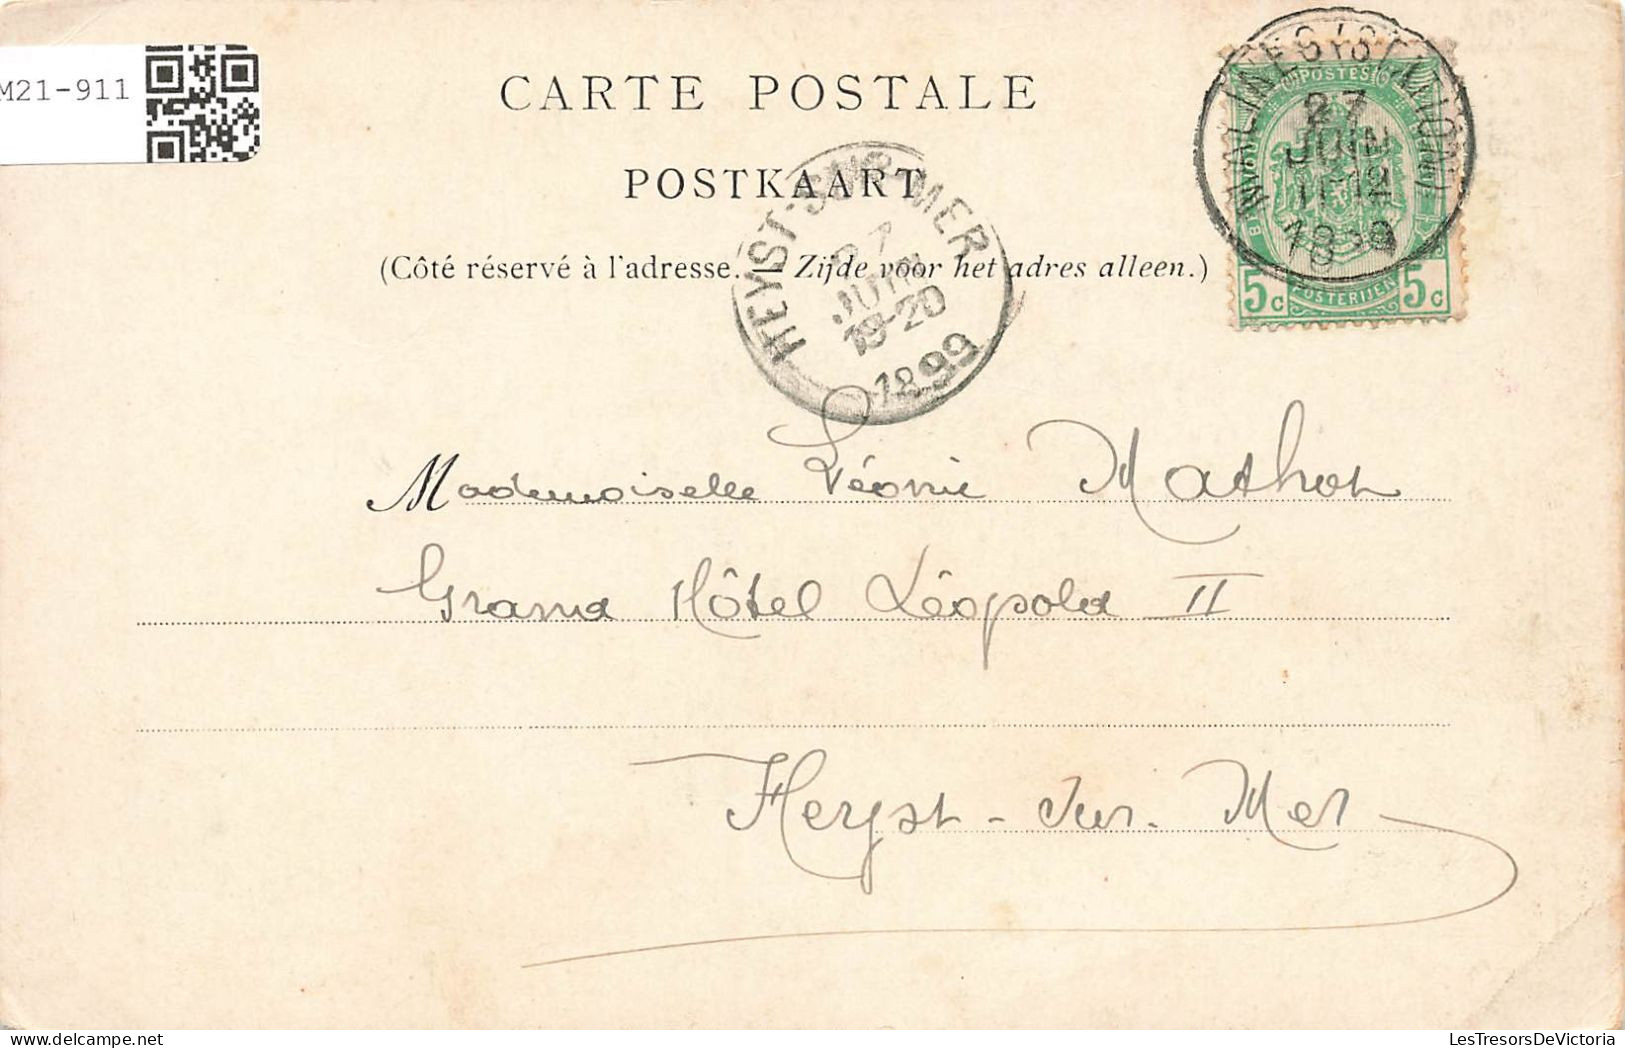 M21-911
CARTE POSTALE
POSTKAART
(Côté réservé à l'adresse. — Zijde voor het adres alleen.)
MALINES (STATION)
27
JUIN
11-12
1899
POSTES
5c POSTERIJEN 5c
HEYST-SUR-MER
27
JUIN
19-20
1899
Mademoiselle Léonie Mathot
Grand Hôtel Léopold II
Heyst-sur-Mer
LesTresorsDeVictoria